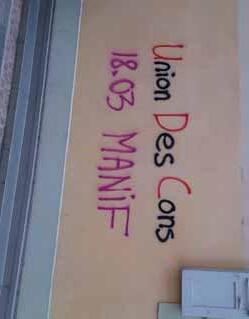 Union Des Cons
18.03 MANIF